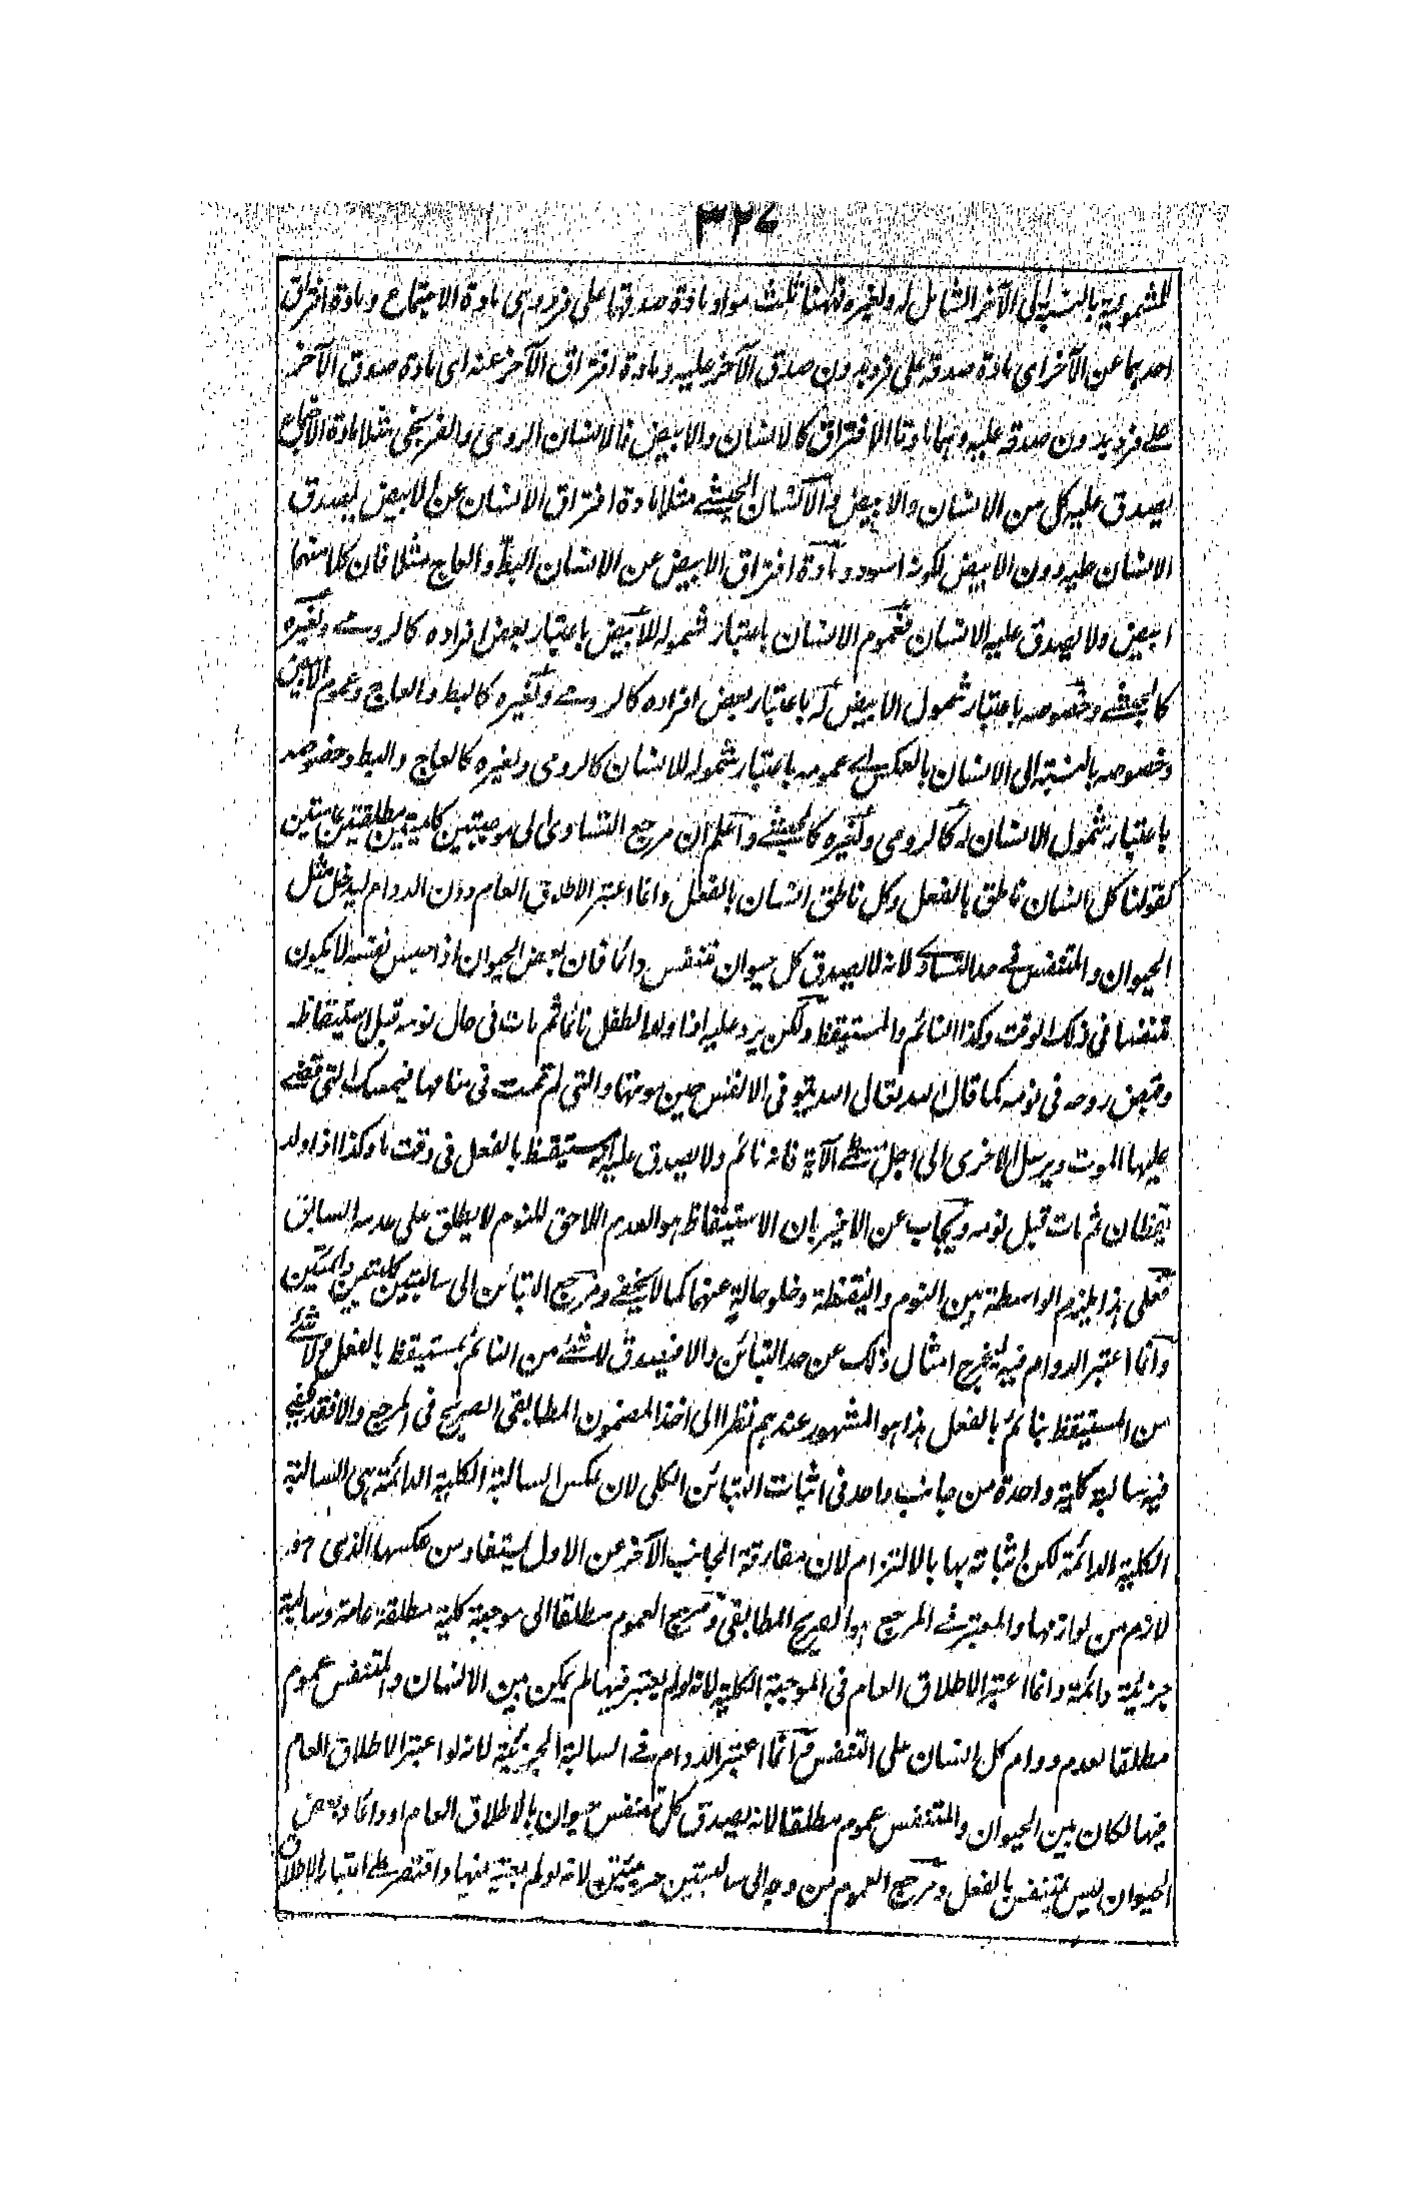 ٣٢٧
للمشمولية بالنسبة الى الآخر الشامل له ولغيره فههنا ثلث مواد مادة صدقها على فرد وهى مادة الاجتماع ومادة افتراق
احدهما عن الآخر اى مادة صدقه على فرد بدون صدق الآخر عليه ومادة افتراق الآخر عنه اى مادة صدق الآخر
على فرد بدون صدقه عليه وهما مادتا الافتراق كالانسان والابيض فالانسان الرومى والفرنجى مثلا مادة الاجتماع
يصدق عليه كل من الانسان والابيض والانسان الحبشے مثلا مادة افتراق الانسان عن الابيض يصدق
الانسان عليه دون الابيض لكونه اسود ومادة افتراق الابيض عن الانسان البط والعاج مثلا فان كلا منهما
ابيض ولا يصدق عليه الانسان فعموم الانسان باعتبار شموله للابيض باعتبار بعض افراده كالرومے ولغيره
كالحبشے وخصوصه باعتبار شمول الابيض له باعتبار بعض افراده كالرومے ولغيره كالبط والعاج وعموم الابيض
وخصوصه بالنسبة الى الانسان بالعكس اے عمومه باعتبار شموله للانسان كالرومى ولغيره كالعاج والبط وخصوصه
باعتبار شمول الانسان له كالرومى ولغيره كالحبشے واعلم ان مرجع التساوى الى موجبتين كليتين مطلقتين عامتين
كقولنا كل انسان ناطق بالفعل وكل ناطق انسان بالفعل وانما اعتبر الاطلاق العام دون الدوام ليدخل مثل
الحيوان والمتنفس فے حد التساوے لانه لا يصدق كل حيوان متنفس دائما فان بعض الحيوان اذا حبس نفسه لا يكون
متنفسا فى ذلك الوقت وكذا النائم والمستيقظ ولكن يرد عليه اذا ولد الطفل نائما ثم مات فى حال نومه قبل استيقاظه
وقبض روحه فى نومه كما قال الله تعالى الله يتوفى الانفس حين موتها والتى لم تمت فى منامها فيمسك التى قضے
عليها الموت ويرسل الاخرى الى اجل مسمے الآية فانه نائم ولا يصدق عليه المستيقظ بالفعل فى وقت ما وكذا اذا ولد
يقظان ثم مات قبل نومه ويجاب عن الاخير بان الاستيقاظ هو العدم اللاحق للنوم لا يطلق على عدمه السابق
فعلى هذا يلزم الواسطة بين النوم واليقظة وخلو حالة عنهما كما لا يخفے ومرجع التبائن الى سالبتين كليتين دائمتين
وانما اعتبر الدوام فيه ليخرج امثال ذلك عن حد التبائن والا فيصدق لا شئے من النائم بمستيقظ بالفعل ولا شئے
من المستيقظ بنائم بالفعل هذا هو المشهور عندهم نظرا الى اخذ المضمون المطابقى الصريح فى المرجع والا فقد يكفے
فيه سالبة كلية واحدة من جانب واحد فى اثبات التبائن الكلى لان عكس السالبة الكلية الدائمة هى السالبة
الكلية الدائمة لكن اثباته بها بالالتزام لان مفارقة الجانب الآخر عن الاول يستفاد من عكسها الذى هو
لازم من لوازمها والمعتبر فے المرجع هو الصريح المطابقى ومرجع العموم مطلقا الى موجبة كلية مطلقة عامة وسالبة
جزئية دائمة وانما اعتبر الاطلاق العام فى الموجبة الكلية لانه لو لم يعتبر فيها لم يكن بين الانسان والمتنفس عموم
مطلقا لعدم دوام كل انسان على التنفس وانما اعتبر الدوام فے السالبة الجزئية لانه لو اعتبر الاطلاق العام
فيها لكان بين الحيوان والمتنفس عموم مطلقا لانه يصدق كل متنفس حيوان بالاطلاق العام او دائما وبعض
الحيوان ليس بمتنفس بالفعل ومرجع العموم من وجه الى سالبتين جزئيتين لانه لو لم يعتبر فيها واقتصر على اعتبار الاطلاق